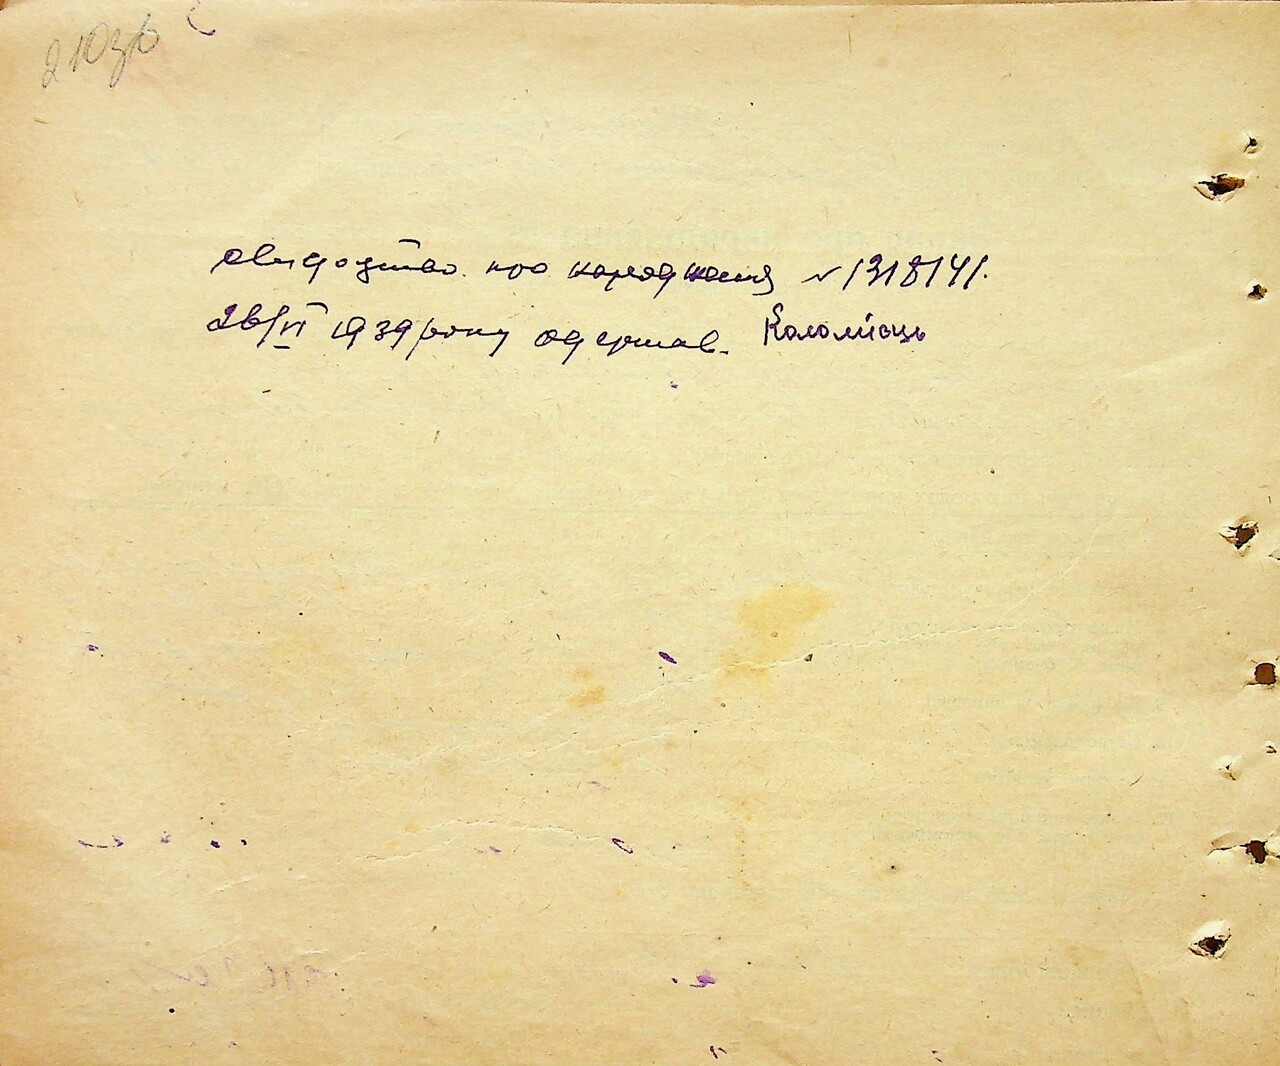 210зв
свидоцтво про народження № 1318141.
26/VI 1939 року одержав. Коломієць